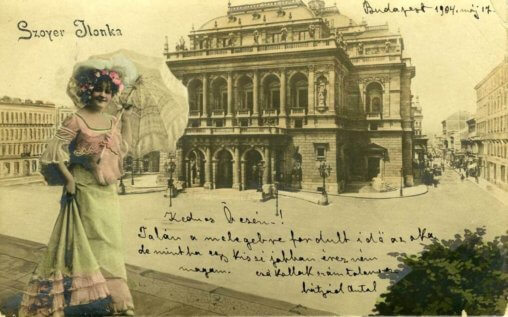 Szoyer Ilonka
Budapest 1904. máj 17.
Kedves Öcsém!
Talán a melegebbre fordult idő az oka
de mintha egy kissé jobban érezném
magam.
bátyád Antal